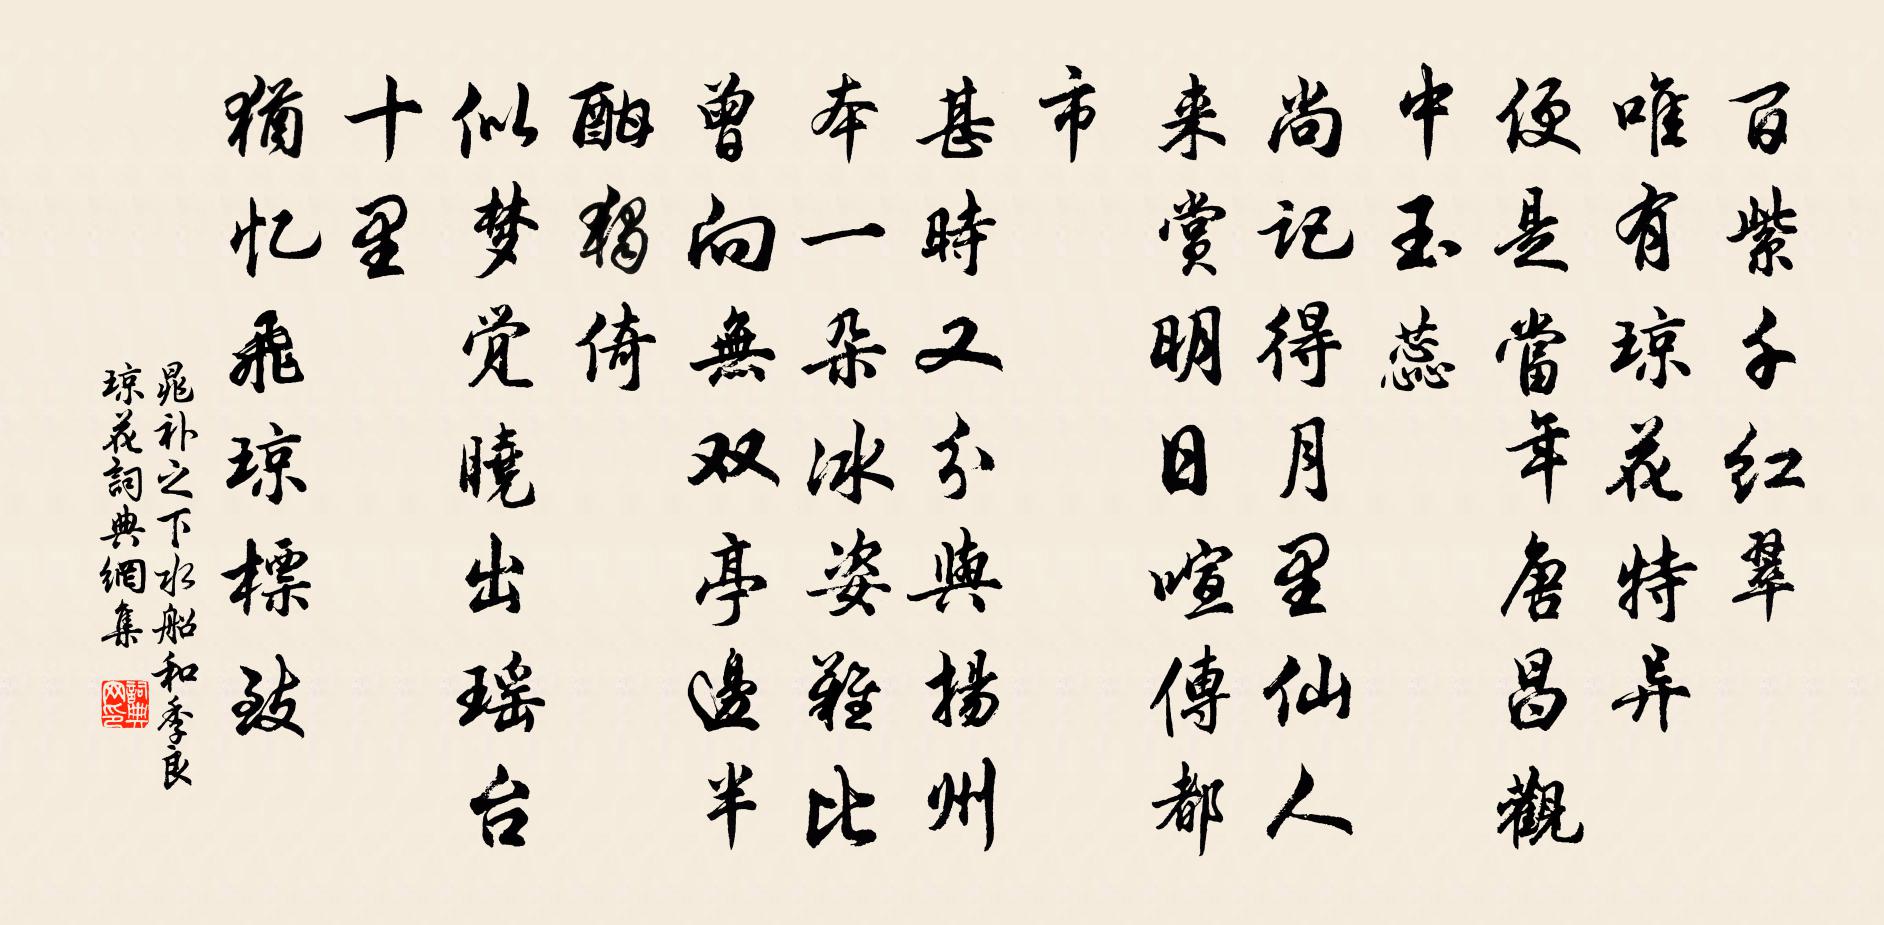 百紫千红翠
唯有琼花特异
便是當年唐昌觀
中玉蕊
尚记得月里仙人
来赏明日喧傳都
市
甚時又分與揚州
本一朵冰姿難比
曾向無双亭邊半
酣獨倚
似梦觉曉出瑶台
十里
猶忆飛琼標致
晁补之下水船和季良
琼花詞典網集
詞典网印